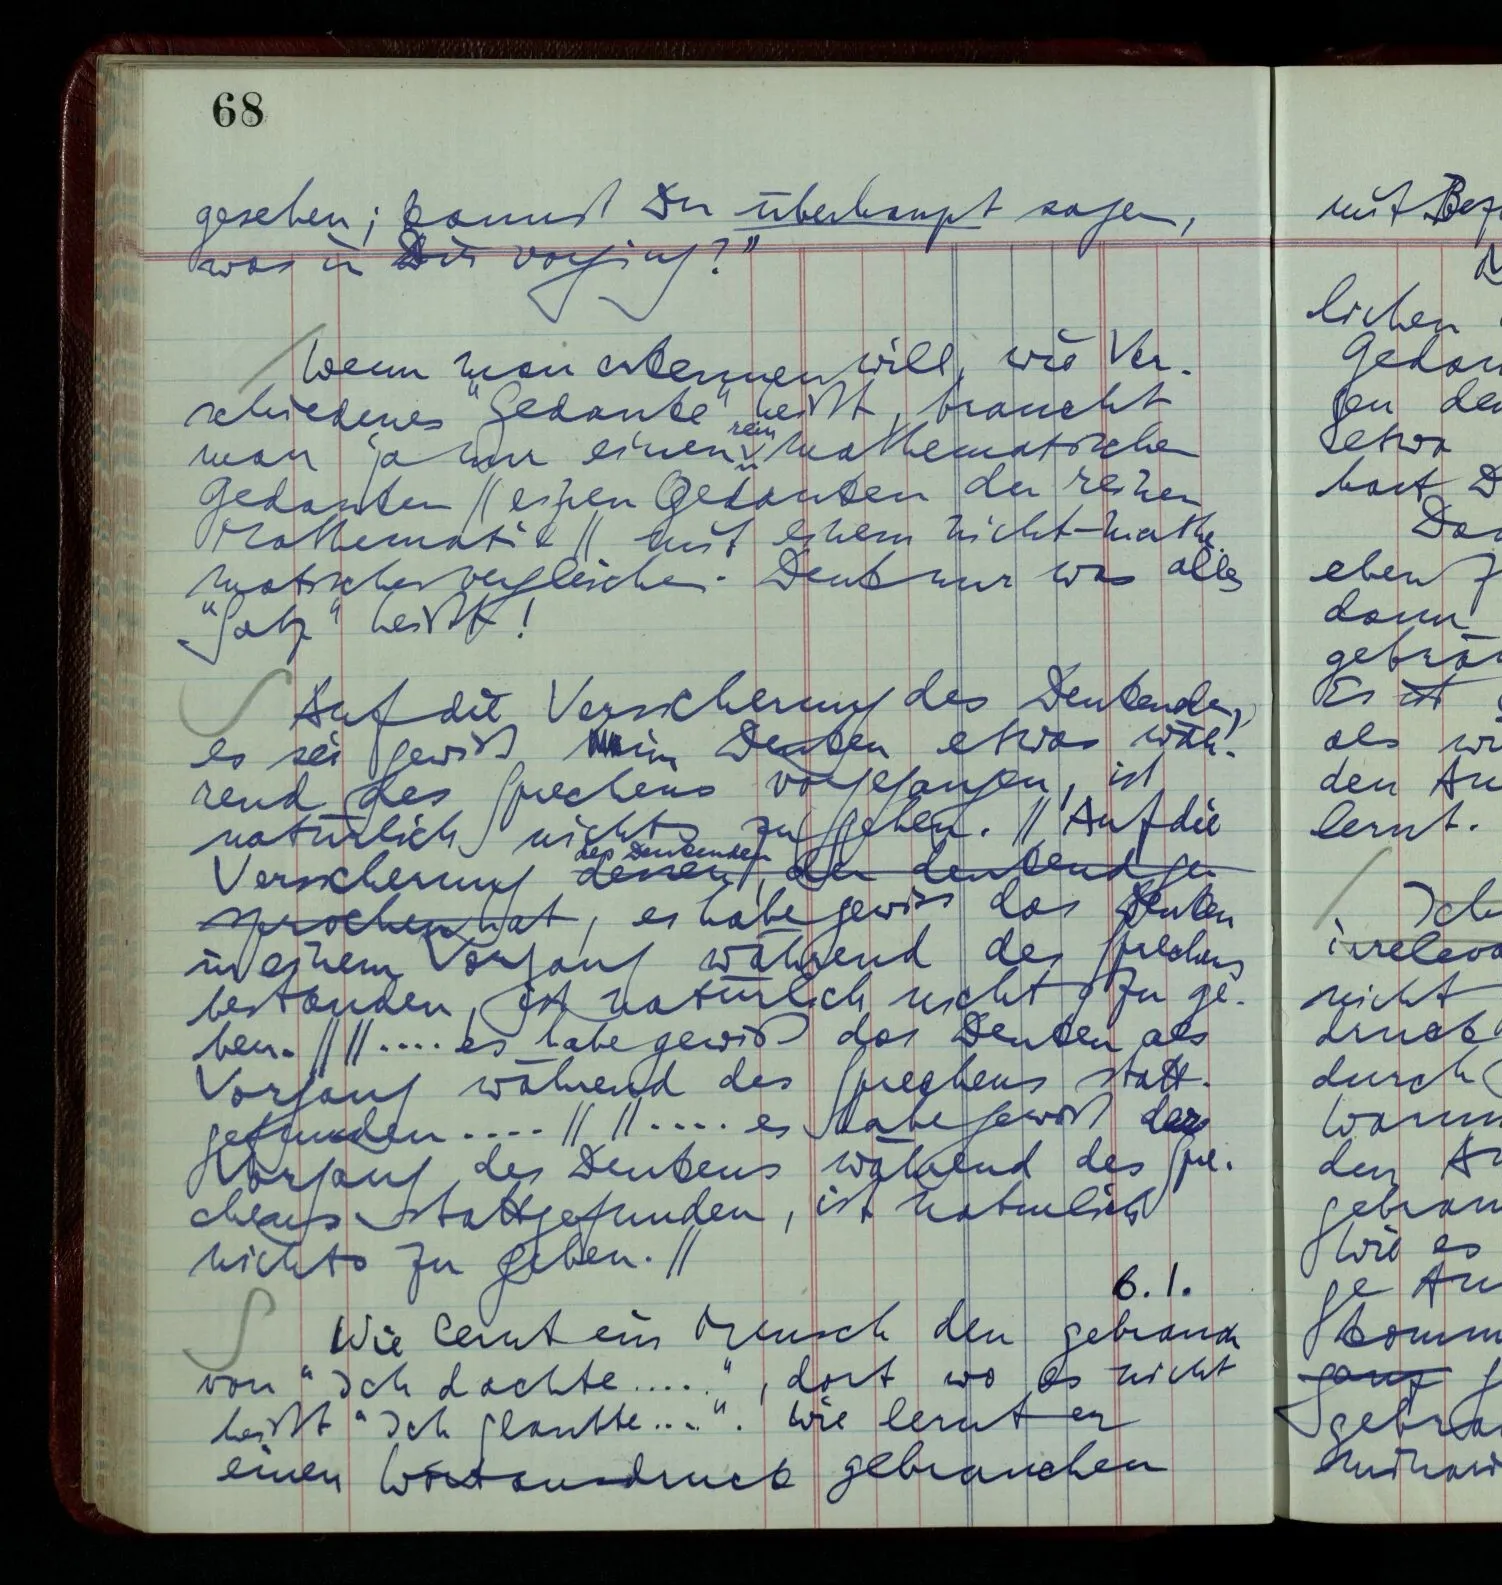 68
gesehen; kannst Du überhaupt sagen,
was in Dir vorging?"
Wenn man erkennen will, wie Ver-
schiedenes "Gedanke" heißt, braucht
man ja nur einen rein mathematischen
Gedanken // einen Gedanken der reinen
Mathematik // mit einem nicht-mathe-
matischen vergleichen. Denk nur was alles
"Satz" heißt!
Auf die Versicherung des Denkenden,
es sei gewiß im Denken etwas wäh-
rend des Sprechens vorgegangen, ist
natürlich nichts zu geben. // Auf die
Versicherung dessen, der denkend ge-
des Denkenden
sprochen hat, es habe gewiss das Denken
in einem Vorgang während des Sprechens
bestanden, ist natürlich nichts zu ge-
ben. // //.... es habe gewiß das Denken als
Vorgang während des Sprechens statt-
gefunden .... // //.... es habe gewiß der
Vorgang des Denkens während des Spre-
chens stattgefunden, ist natürlich
nichts zu geben. //
6.1.
Wie lernt ein Mensch den Gebrauch
von "Ich dachte.....", dort wo es nicht
heißt "Ich glaubte....". Wie lernt er
einen Wortausdruck gebrauchen
mit
lichen
Gedan
gen den
etwa
eben
dann
Es ist
als
den
lernt.
Ich
nicht
druck
durch
den
Wie es
ge